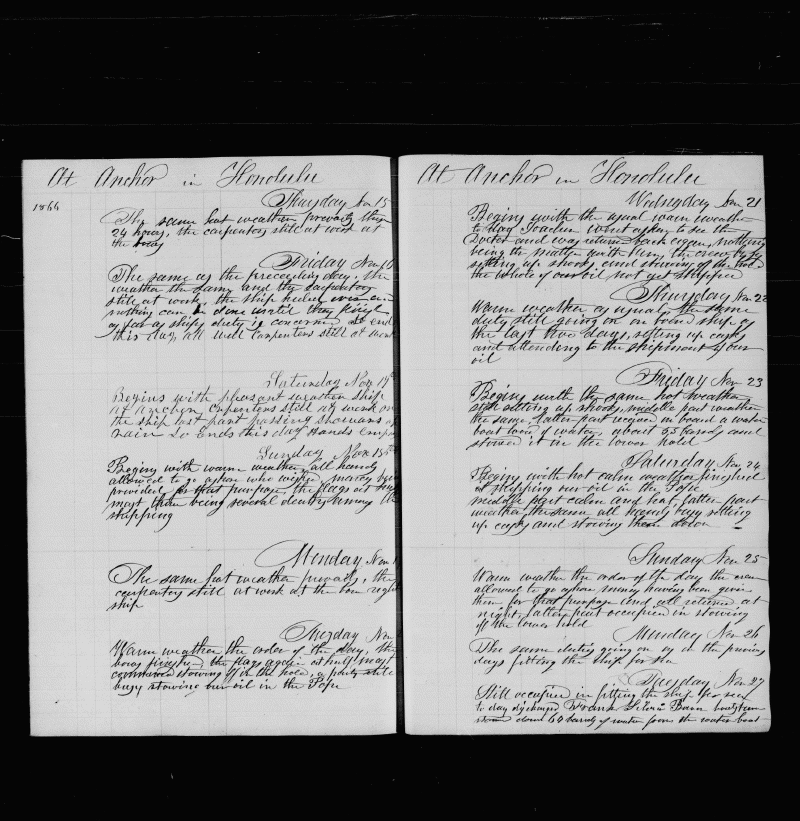 At Anchor in Honolulu
1866
Thursday Nov 15
The same hot weather prevails this
24 hours, the carpenters still at work at
the
Friday Nov 16
The same as the preceeding day, the
weather the same and the carpenters
still at work, the ship heeled over and
nothing can be done until they finish
as far as ships duty is concerned So ends
this day, all well Carpenters still at work
Saturday Nov 17th
Begins with pleasant weather ship
at anchor carpenters still at work on
the ship last part passing showers of
rain So Ends this day Hands employed
Sunday Nov 18th
Begins with warm weather all hands
allowed to go ashore who wished, money being
provided for that purpose, the flags at half
mast there being several deaths among the
shipping
Monday Nov
The same hot weather prevails, the
carpenters still at work at the bow
ship
Tuesday Nov
Warm weather the order of the day, the
finished the flags again at half mast
commenced stowing off in the hold, a party still
busy stowing our oil in the
At Anchor in Honolulu
Wednesday Nov 21
Begins with the usual warm weather
to day Joachin went ashore to see the
Doctor and was returned back again, nothing
being the matter with him, the crew busy
setting up shooks and stowing of the hold
the whole of our oil not yet shipped
Thursday Nov 22
Warm weather as usual, the same
duty still going on on board ship as
the last two days, setting up casks
and attending to the shipment of our
oil
Friday Nov 23
Begins with the same hot weather
setting up shooks, middle part weather
the same, latter part received on board a water
boat load of water, about 95 barrels and
stowed it in the lower hold
Saturday Nov 24
Begins with hot calm weather finished
shipping our oil in the
middle part calm and hot, latter part
weather the same all hands busy setting
up casks and stowing them down
Sunday Nov 25
Warm weather the order of the day the crew
allowed to go ashore money having been given
them for that purpose and all returned at
night, latter part occupied in stowing
off the lower hold
Monday Nov 26
The same duties going on as on the previous
days fitting the ship for sea
Tuesday Nov 27
Still occupied in fitting the ship for sea
to day discharged Frank
stowed down 60 barrels of water from the water boat